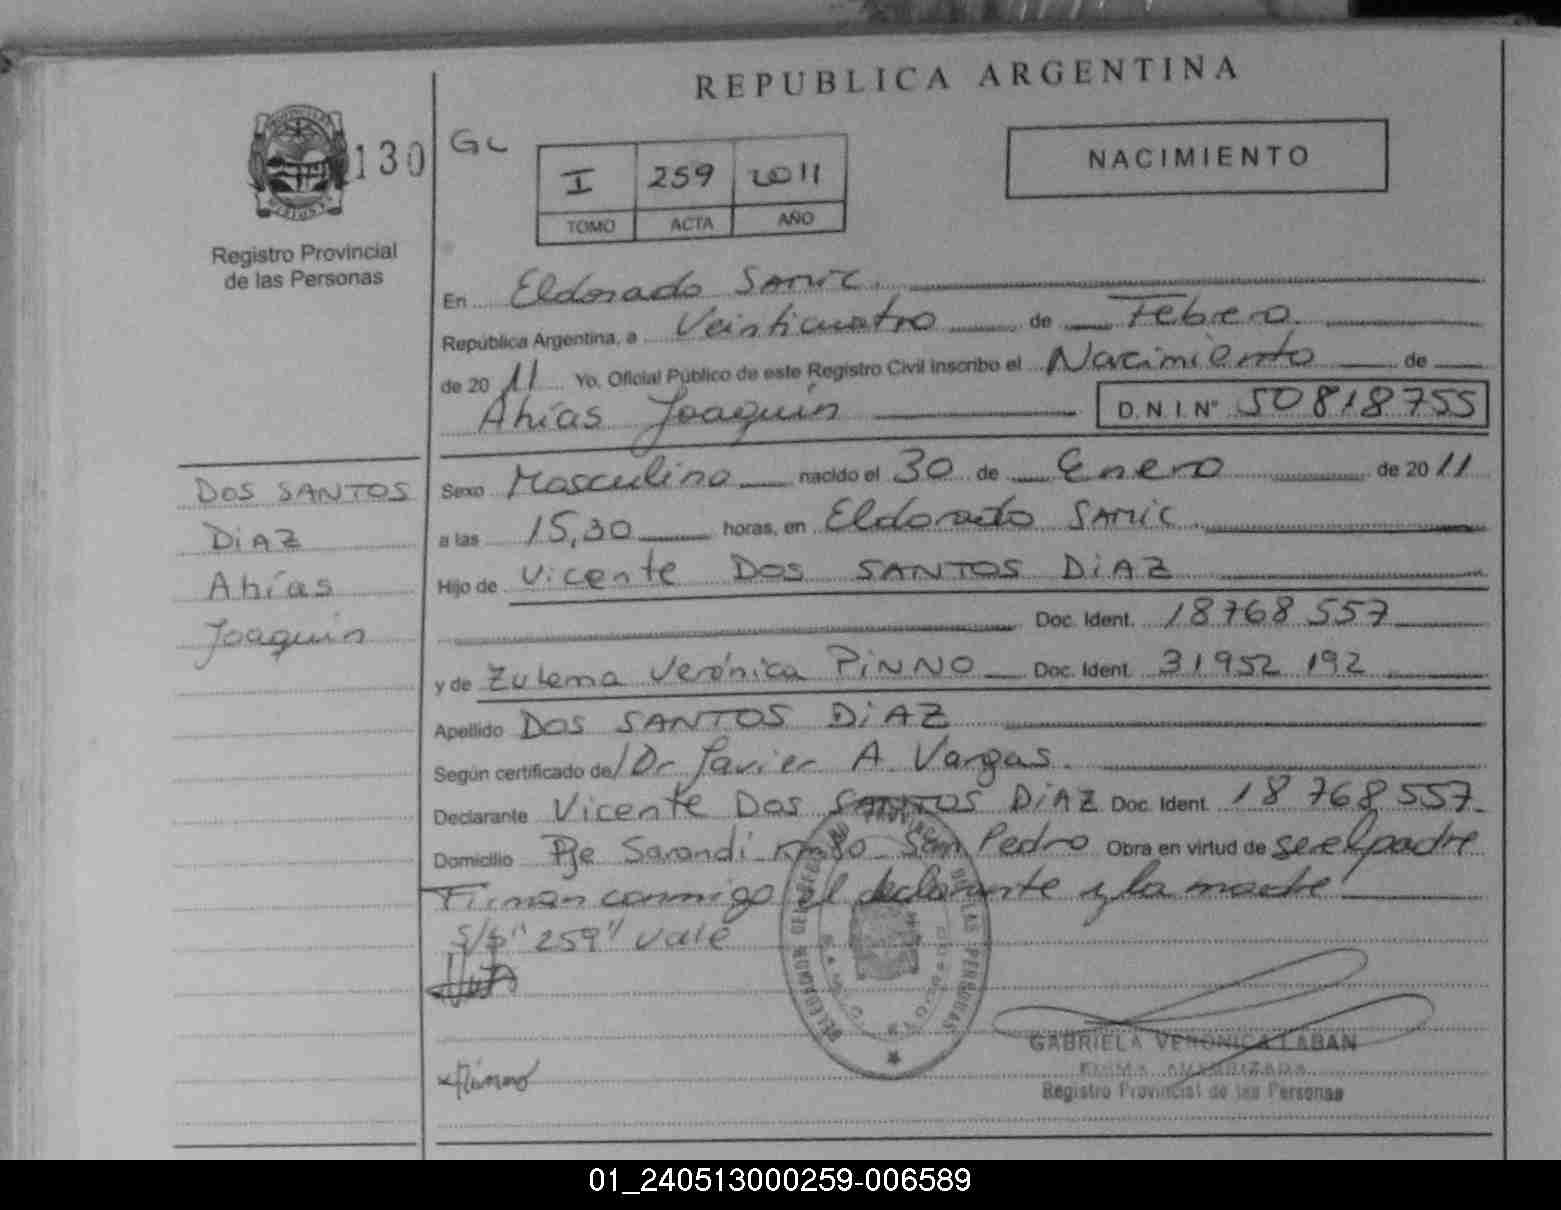 REPUBLICA ARGENTINA
130
GL
I 259 2011
TOMO ACTA AÑO
NACIMIENTO
Registro Provincial
de las Personas
En Eldorado SAMIC
República Argentina, a Veinticuatro de Febrero
de 20 11 Yo, Oficial Público de este Registro Civil Inscribo el Nacimiento de
Ahías Joaquín D.N.I.Nº 50818755
Sexo Masculino nacido el 30 de Enero de 20 11
a las 15,30 horas, en Eldorado SAMIC
Hijo de Vicente DOS SANTOS DiAZ
Doc. Ident. 18768 557
y de Zulema Verónica PiNNO Doc. Ident. 31952 192
Apellido DOS SANTOS DiAZ
Según certificado de/ Dr Javier A. Vargas.
Declarante Vicente Dos SANTOS DiAZ Doc. Ident. 18 768 557
Domicilio Pje Sarandi San Pedro Obra en virtud de ser el padre
Firman conmigo el declarante y la madre
S/ "259" vale
DOS SANTOS
DiAZ
Ahías
Joaquín
GABRIELA VERONICA LABAN
FIRMA AUTORIZADA
Registro Provincial de las Personas
01_240513000259-006589